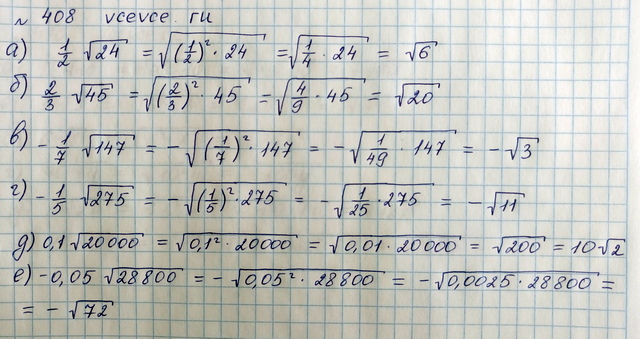 № 408 vcevce.ru
а) 1/2 √24 = √((1/2)² · 24) = √(1/4 · 24) = √6
б) 2/3 √45 = √((2/3)² · 45) = √(4/9 · 45) = √20
в) - 1/7 √147 = - √((1/7)² · 147) = - √(1/49 · 147) = - √3
г) - 1/5 √275 = - √((1/5)² · 275) = - √(1/25 · 275) = - √11
д) 0,1 √20000 = √(0,1² · 20000) = √(0,01 · 20000) = √200 = 10√2
е) -0,05 √28800 = - √(0,05² · 28800) = - √(0,0025 · 28800) =
= - √72